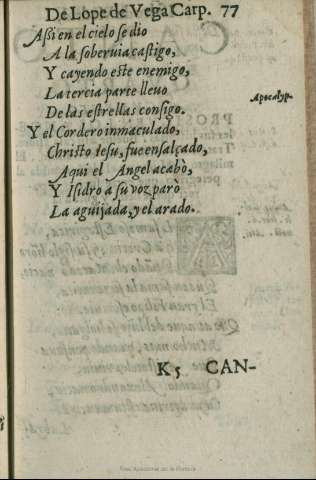 De Lope de Vega Carp. 77
Assi en el cielo se dio
A la soberuia castigo,
Y cayendo este enemigo,
La tercia parte lleuo
Apocalyp.
De las estrellas consigo.
Y el Cordero inmaculado,
Christo Iesu, fue ensalçado,
Aqui el Angel acabò,
Y Isidro a su voz parò
La aguijada, y el arado.
K 5 CAN-